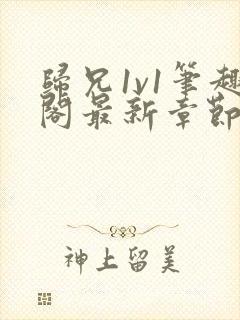 歸兄1v1筆趣
閣最新章節
神上留美